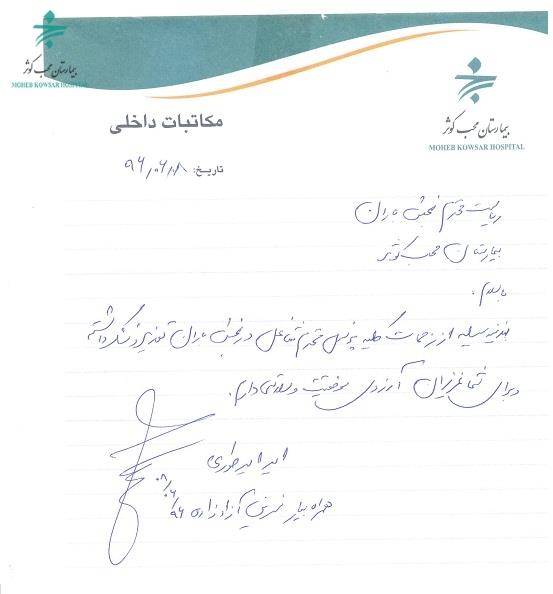 بیمارستان محب کوثر
MOHEB KOWSAR HOSPITAL
بیمارستان محب کوثر
MOHEB KOWSAR HOSPITAL
مکاتبات داخلی
تاریخ: ۹۶/۰۶/۰۸
ریاست محترم بخش
بیمارستان محب کوثر
با سلام.
بدینوسیله از زحمات کلیه پرسنل محترم شاغل در بخش تقدیر و تشکر داشته
و برای شما عزیزان آرزوی موفقیت و سلامتی دارم.
۰۸/۰۶/۹۶
همراه بیمار آزادزاده